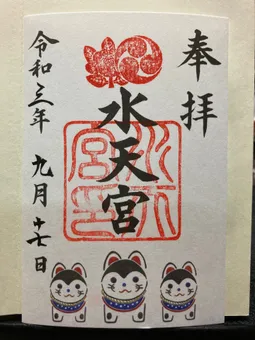 奉拝
水天宮
令和三年 九月十七日